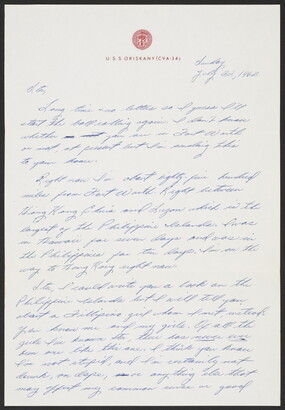 U.S.S. ORISKANY (CVA-34)
Sunday
July
Sto,
Long time no letter so I guess I'll
start the ball rolling again. I don't know
whether you are in Fort Worth
or not at present but I'm sending this
to your home.
Right now I'm about eighty five hundred
miles from Fort Worth. Right between
Hong Kong China and Luzon which is the
largest of the Philippine Islands. I was
in Hawaii for seven days and was in
the Philippines for ten days. I'm on the
way to Hong Kong right now.
I could write you a book on the
Philippine Islands but I will tell you
about a Fillipino girl that I met instead.
You know me and my girls. Of all the
girls I've known Sto, there has never
been one like this one. I think you know
I'm not stupid, and I'm certainly not
drunk, on dope, or anything else that
may effect my common sense or good